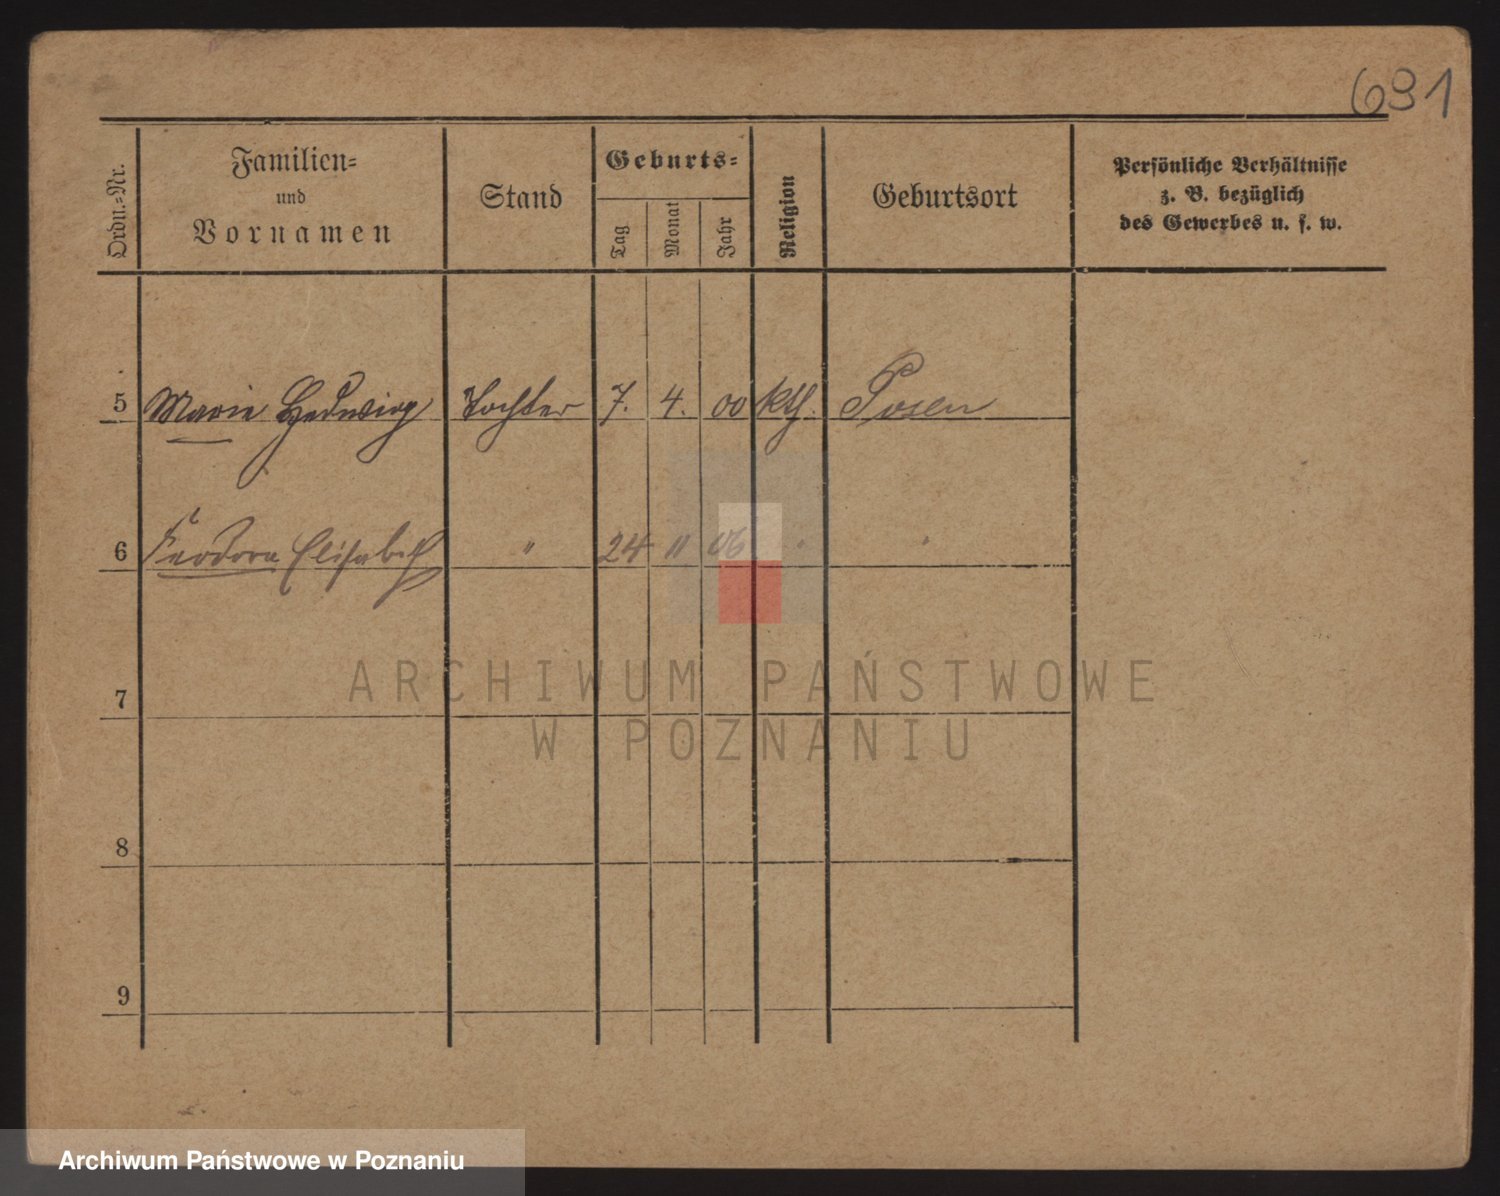 691
Ordn.-Nr.
Familien-
und
Vornamen
Stand
Geburts-
Tag
Monat
Jahr
Religion
Geburtsort
Persönliche Verhältnisse
z. B. bezüglich
des Gewerbes u. s. w.
5 Marie Hedwig Tochter 7. 4. 00 kth. Posen
6 Feodora Elisabeth " 24 11 06 " "
7
ARCHIWUM PAŃSTWOWE
W POZNANIU
8
9
Archiwum Państwowe w Poznaniu